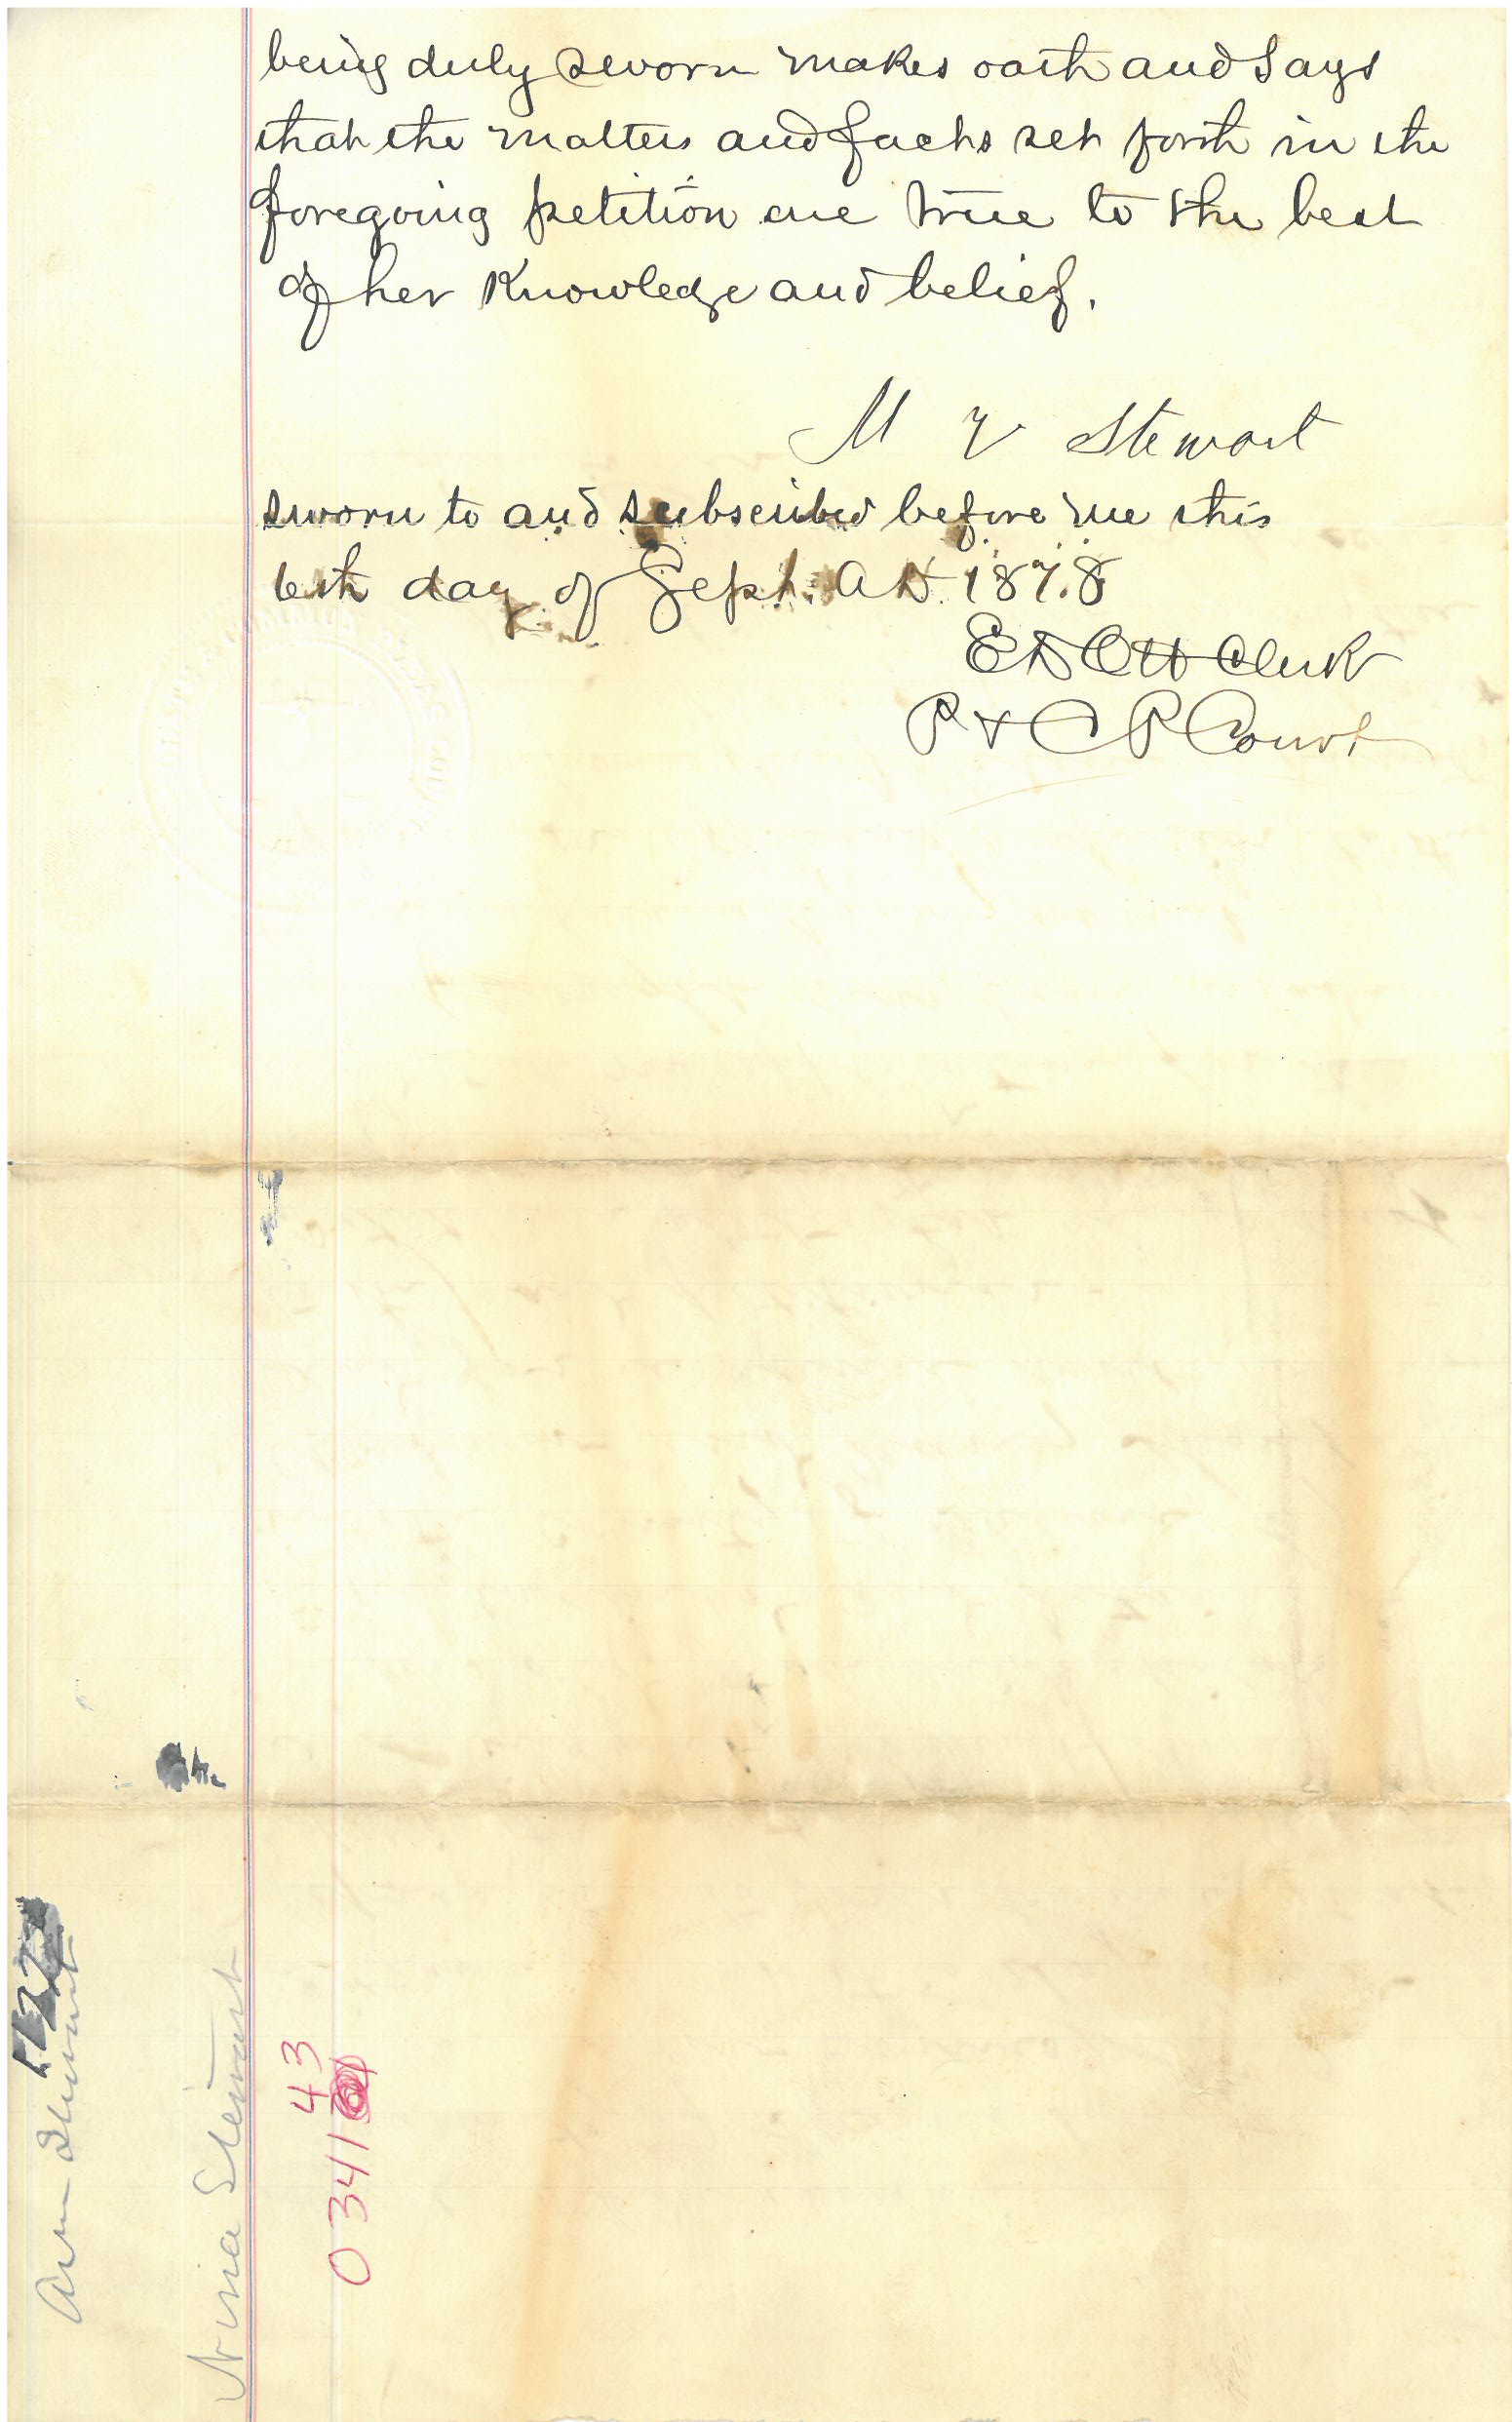 being duly sworn makes oath and Says
that the matters and facts set forth in the
foregoing petition are true to the best
of her Knowledge and belief.
M V Stewart
sworn to and subscribed before me this
6th day of Sept. A D. 1878
E D Ott Clerk
P & C P Court
Ann Stewart
Nina Stewart
43
0341